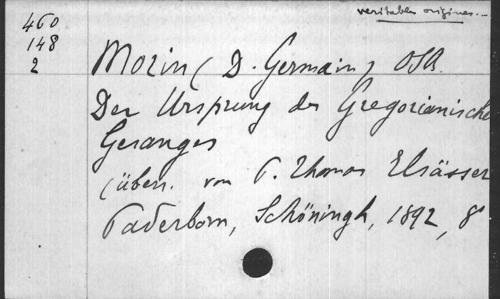 veritables origines...
460
148
2
Morin (D. Germain) OSB.
Der Ursprung des Gregorianische
Gesanges
(übers. von P. Thomas Elsässer
Paderborn, Schöningh, 1892, 8°